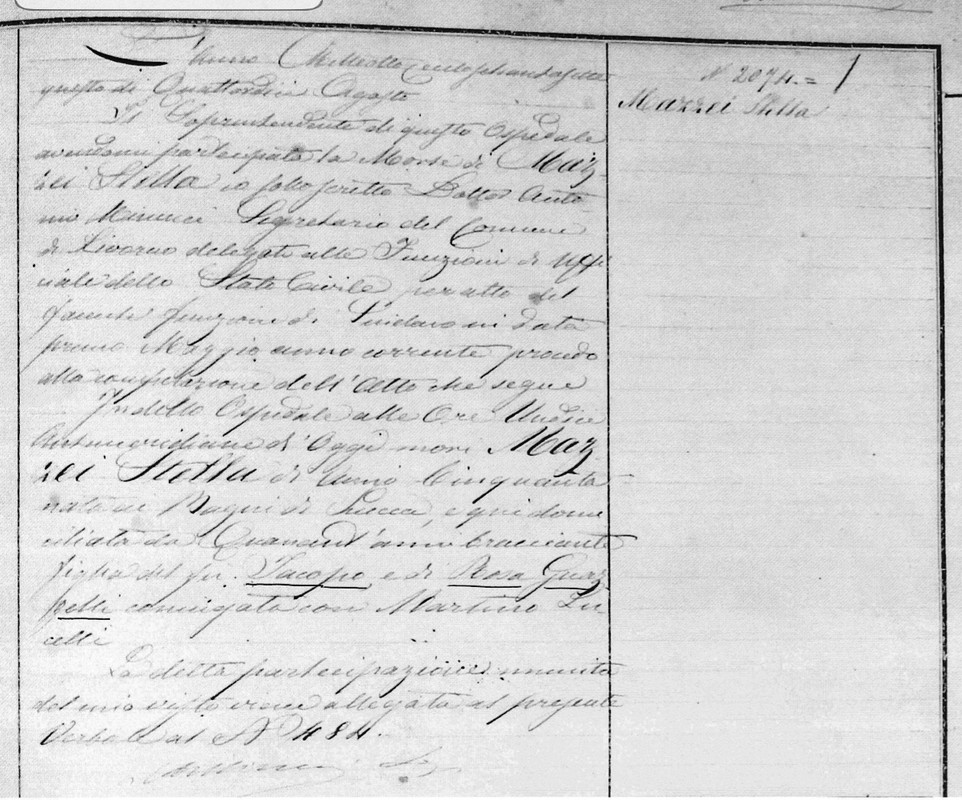 Anno Milleottocentosettantasette
questo di Quattordici Agosto
Il Soprintendente di questo Ospedale
avendomi partecipato la Morte di Maz
zei Stella io sottoscritto Dottor Anto
nio Minucci Segretario del Comune
di Livorno delegato alle Funzioni di Uffi
ciale dello Stato Civile per atto del
facente funzione di Sindaco in data
primo Maggio anno corrente procedo
alla compilazione dell'Atto che segue
In detto Ospedale alle Ore Undici
Antimeridiane d'Oggi morì Maz
zei Stella di Anni Cinquanta
nata ai Bagni di Lucca, e qui domi
ciliata da Quarant'anni bracciante
figlia del fu Jacopo e di Rosa Guaz
pelli coniugata con Martino Lu
celli
La detta partecipazione munita
del mio visto viene allegata al presente
Verbale al N° 484.
N 2074.=
Mazzei Stella